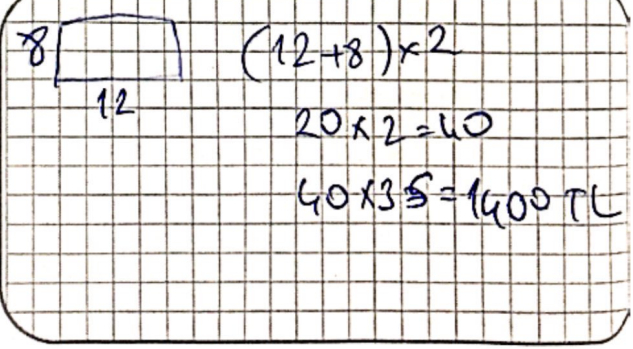 8 (12+8)×2
12
20×2=40
40×35=1400 TL